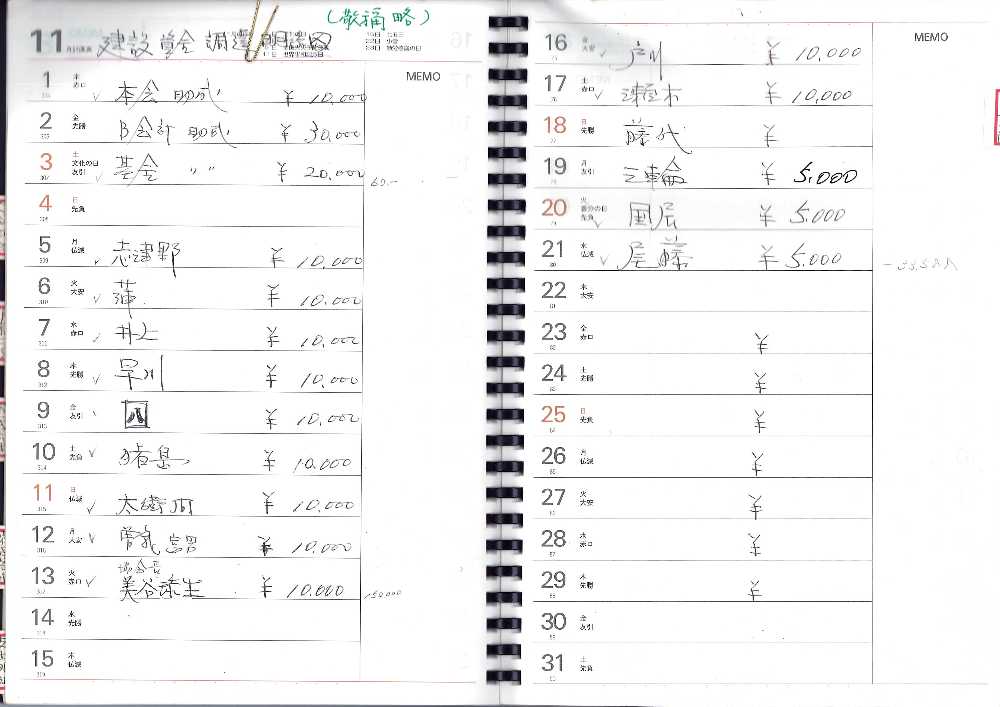 (敬称略)
11 建設資金調達明細図
MEMO
1 木 赤口 本会 助成 ¥ 10,000
2 金 先勝 B会計 助成 ¥ 30,000
3 土 文化の日 友引 基金 〃 ¥ 20,000
60.-
4 日 先負
5 月 仏滅 志津野 ¥ 10,000
6 火 大安 蒲 ¥ 10,000
7 水 赤口 井上 ¥ 10,000
8 木 先勝 早川 ¥ 10,000
9 金 友引 ¥ 10,000
10 土 先負 猪島 ¥ 10,000
11 日 仏滅 ¥ 10,000
12 月 大安 ¥ 10,000
協会長
13 火 赤口 美谷添生 ¥ 10,000
150,000
14 水 先勝
15 木 仏滅
MEMO
16 金 大安 戸川 ¥ 10,000
17 土 赤口 ¥ 10,000
18 日 先勝 藤代 ¥
19 月 友引 三輪 ¥ 5.000
20 火 春分の日 先負 ¥ 5.000
21 水 仏滅 尾藤 ¥ 5.000
22 木 大安
23 金 赤口 ¥
24 土 先勝 ¥
25 日 先負 ¥
26 月 仏滅 ¥
27 火 大安 ¥
28 水 赤口 ¥
29 木 先勝 ¥
30 金 友引
31 土 先負